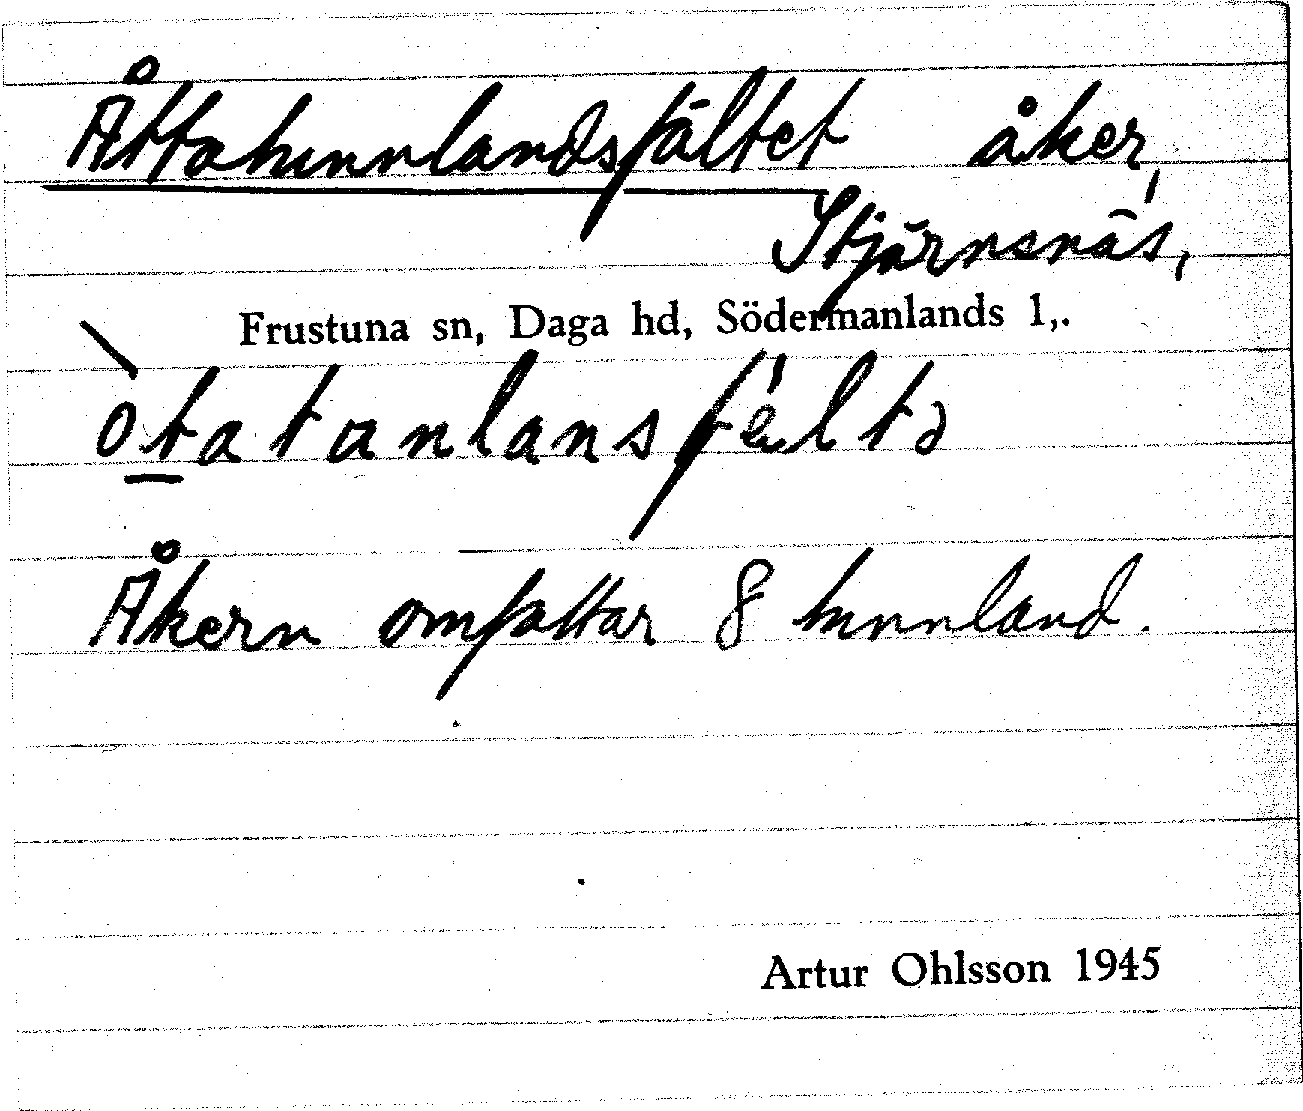 Åttatunnlandsfältet åker,
Stjärnsnäs,
Frustuna sn, Daga hd, Södermanlands l,.
òt̲atanlansfèltə
Åkern omfattar 8 tunnland.
Artur Ohlsson 1945